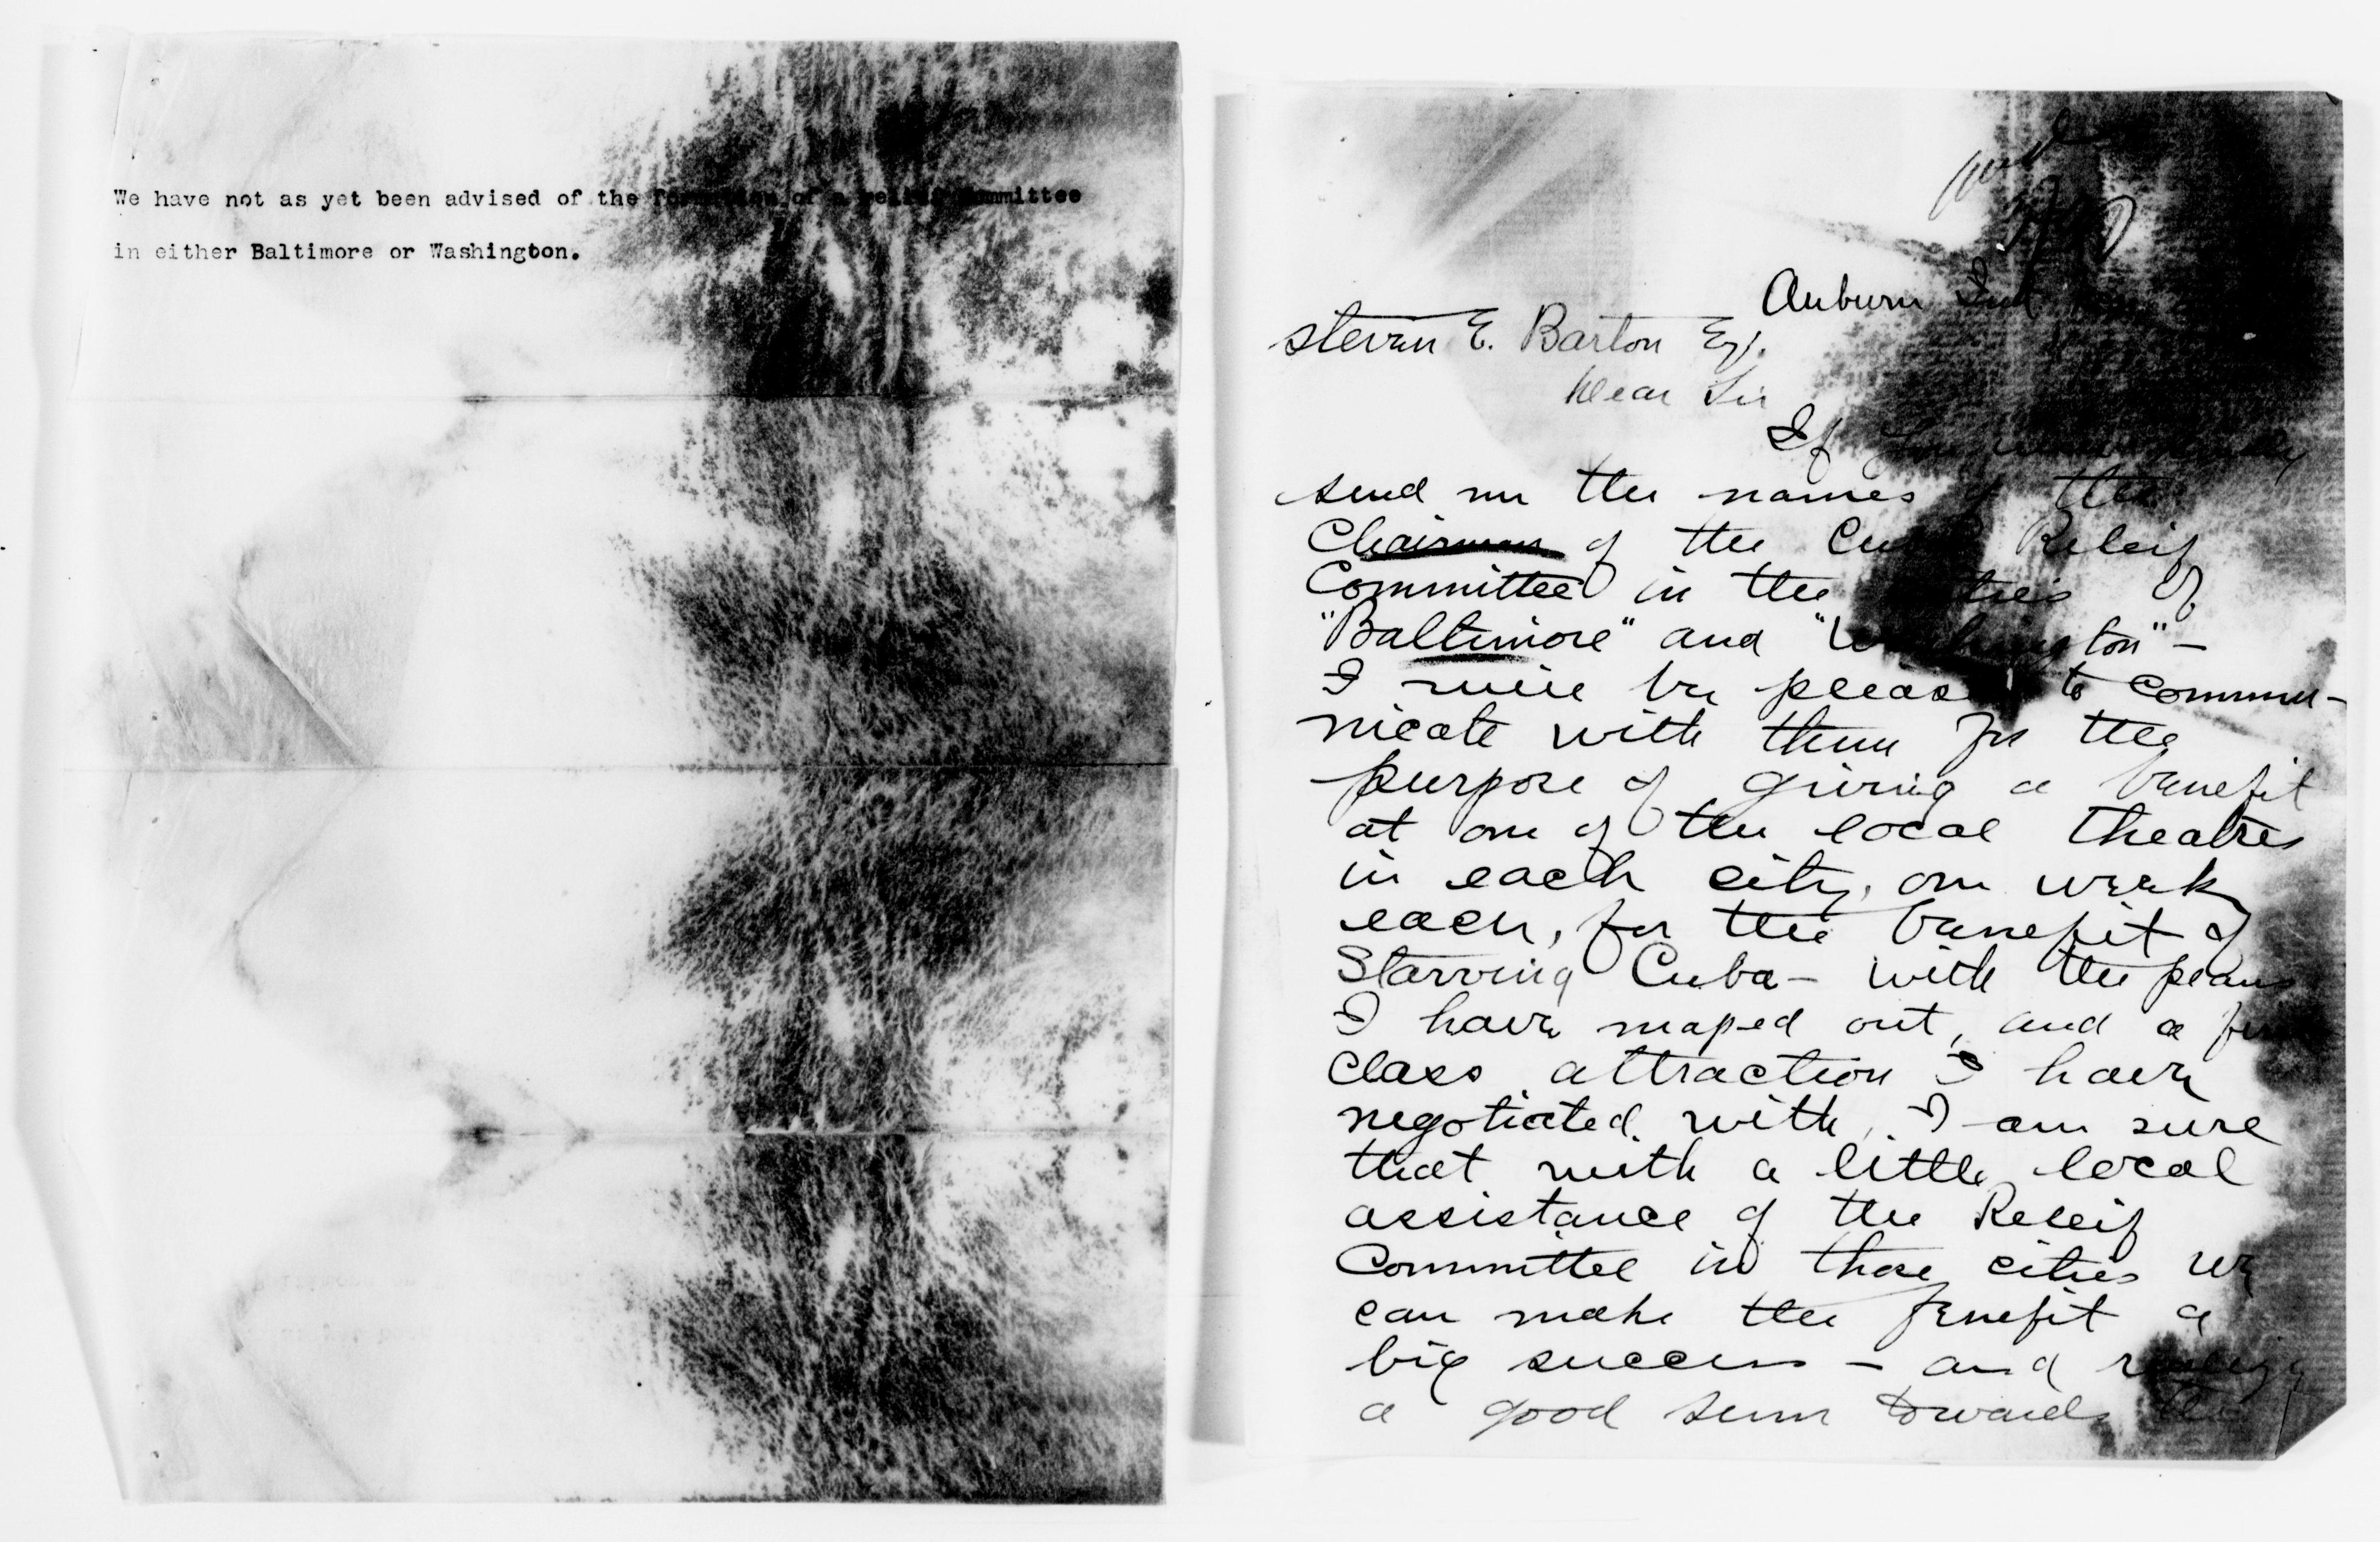 We have not as yet been advised of the formation of a relief committee
in either Baltimore or Washington.
Auburn Ind
Steven E. Barton Esq.
Dear Sir
If you will kindly
send me the names of the
Chairman of the Cuban Releif
Committee in the cities of
"Baltimore" and "Washington" -
I will be pleased to commu-
nicate with them for the
purpose of giving a benefit
at one of the local theatres
in each city, one week
each, for the benefit of
Starving Cuba - with the plans
I have maped out, and a
class attraction I have
negotiated with, I am sure
that with a little local
assistance of the Releif
Committee in those cities we
can make the benefit a
big success - and
a good sum towards the